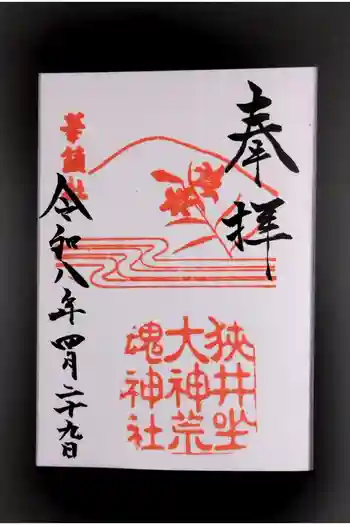 奉拝
狭井坐
大神荒
魂神社
華鎮社
令和八年四月二十九日